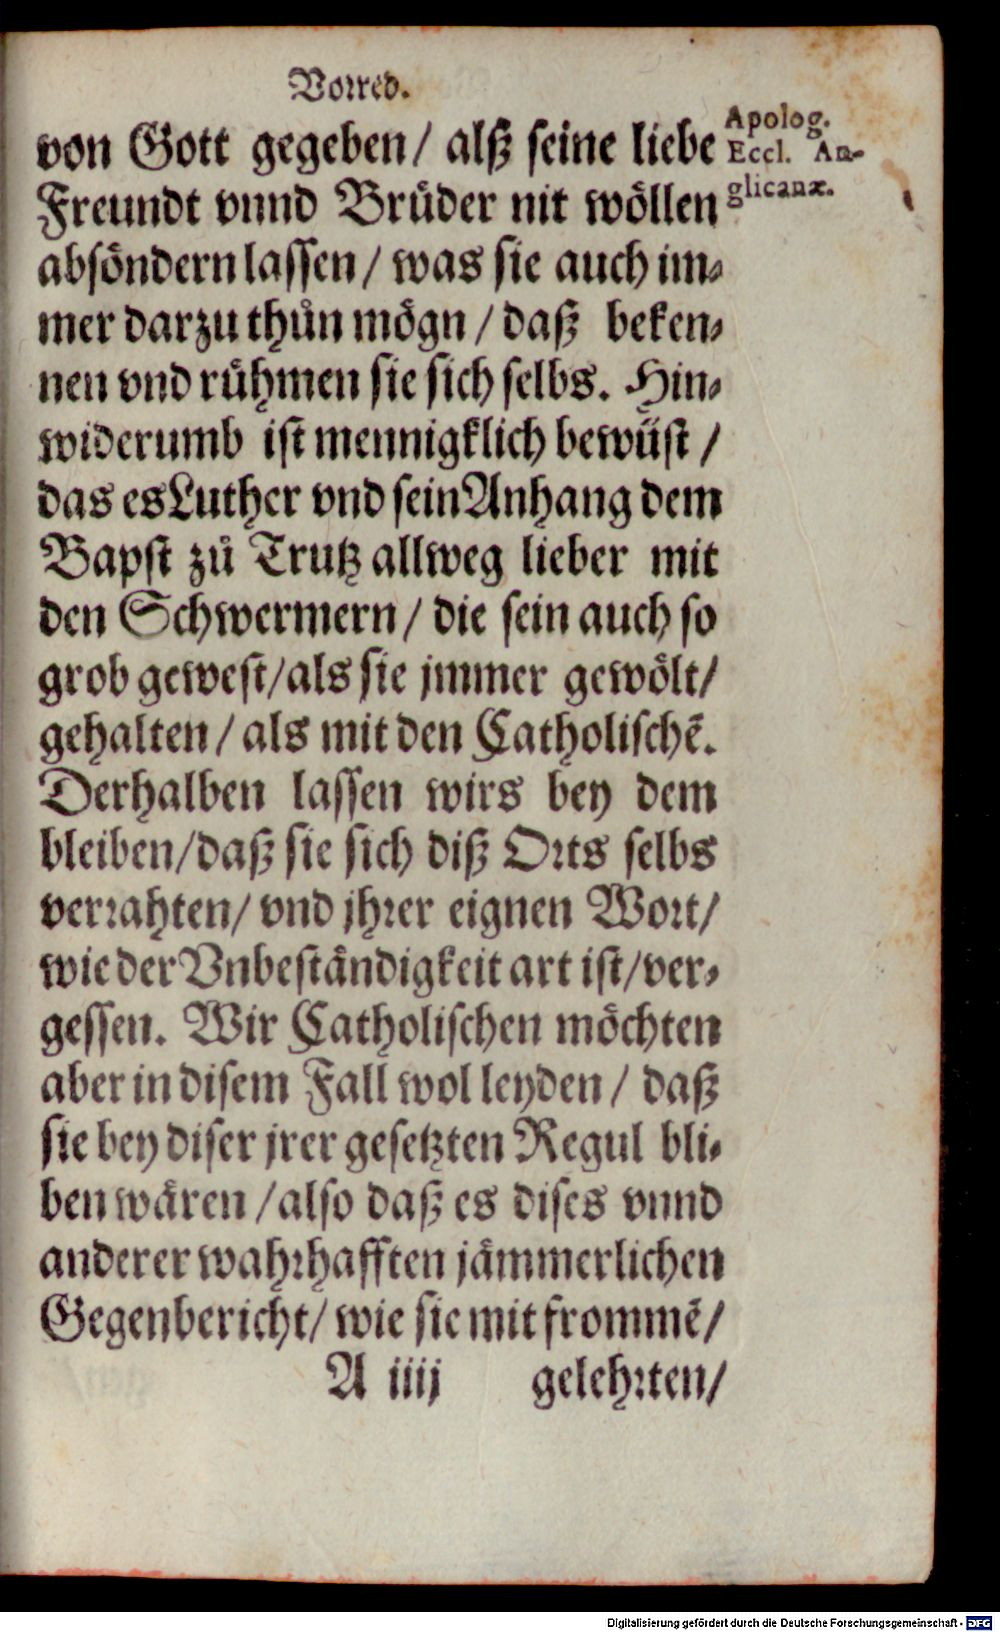 Vorred.
von Gott gegeben/ alß seine liebe
Freundt vnnd Bruͤder nit woͤllen
absoͤndern lassen/ was sie auch im-
mer darzu thuͦn moͤgn/ daß beken-
nen vnd ruͤhmen sie sich selbs. Hin-
widerumb ist mennigklich bewuͤst/
das es Luther vnd sein Anhang dem
Bapst zuͦ Trutz allweg lieber mit
den Schwermern/ die sein auch so
grob gewest/ als sie jmmer gewoͤlt/
gehalten/ als mit den Catholischẽ.
Derhalben lassen wirs bey dem
bleiben/ daß sie sich diß Orts selbs
verrahten/ vnd jhrer eignen Wort/
wie der Vnbestaͤndigkeit art ist/ ver-
gessen. Wir Catholischen moͤchten
aber in disem Fall wol leyden/ daß
sie bey diser jrer gesetzten Regul bli-
ben waͤren/ also daß es dises vnnd
anderer wahrhafften jaͤmmerlichen
Gegenbericht/ wie sie mit frommẽ/
A iiij gelehrten/
Apolog.
Eccl. An-
glicanæ.
Digitalisierung gefördert durch die Deutsche Forschungsgemeinschaft - DFG